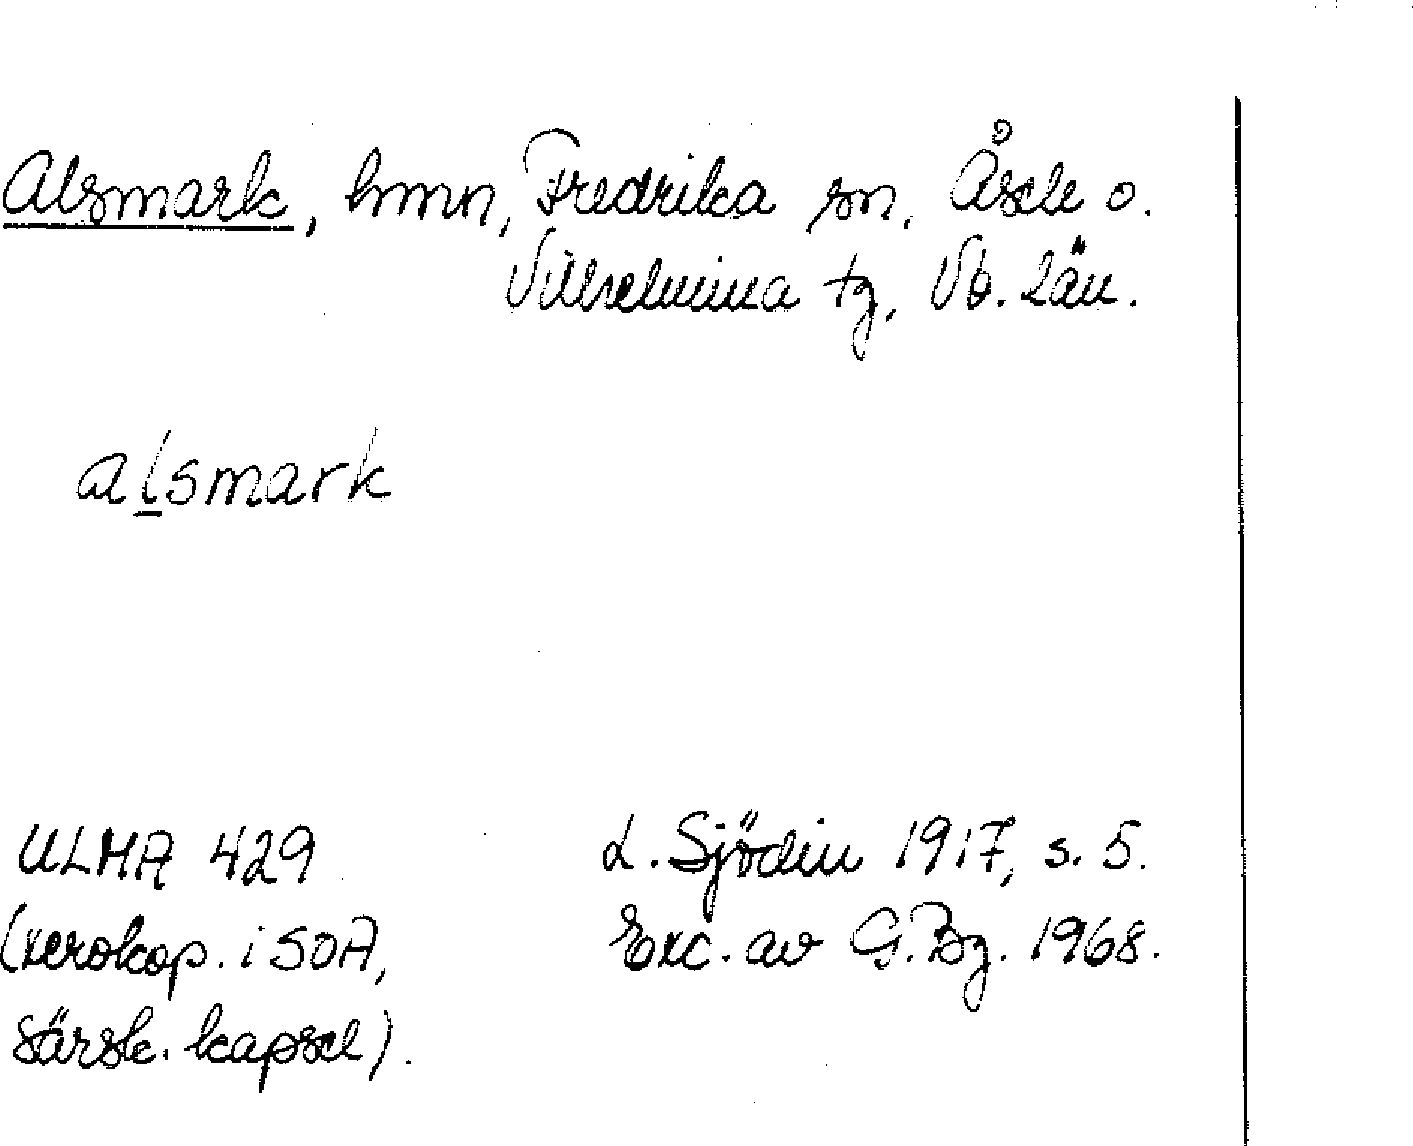 Alsmark, hmn, Fredrika sn, Åsele o.
Vilhelmina tg, Vb. län.
alsmark
ULMA 429
(xerokop. i SOA,
särsk. kapsel).
L. Sjödin 1917, s. 5.
Exc. av G. Bg. 1968.